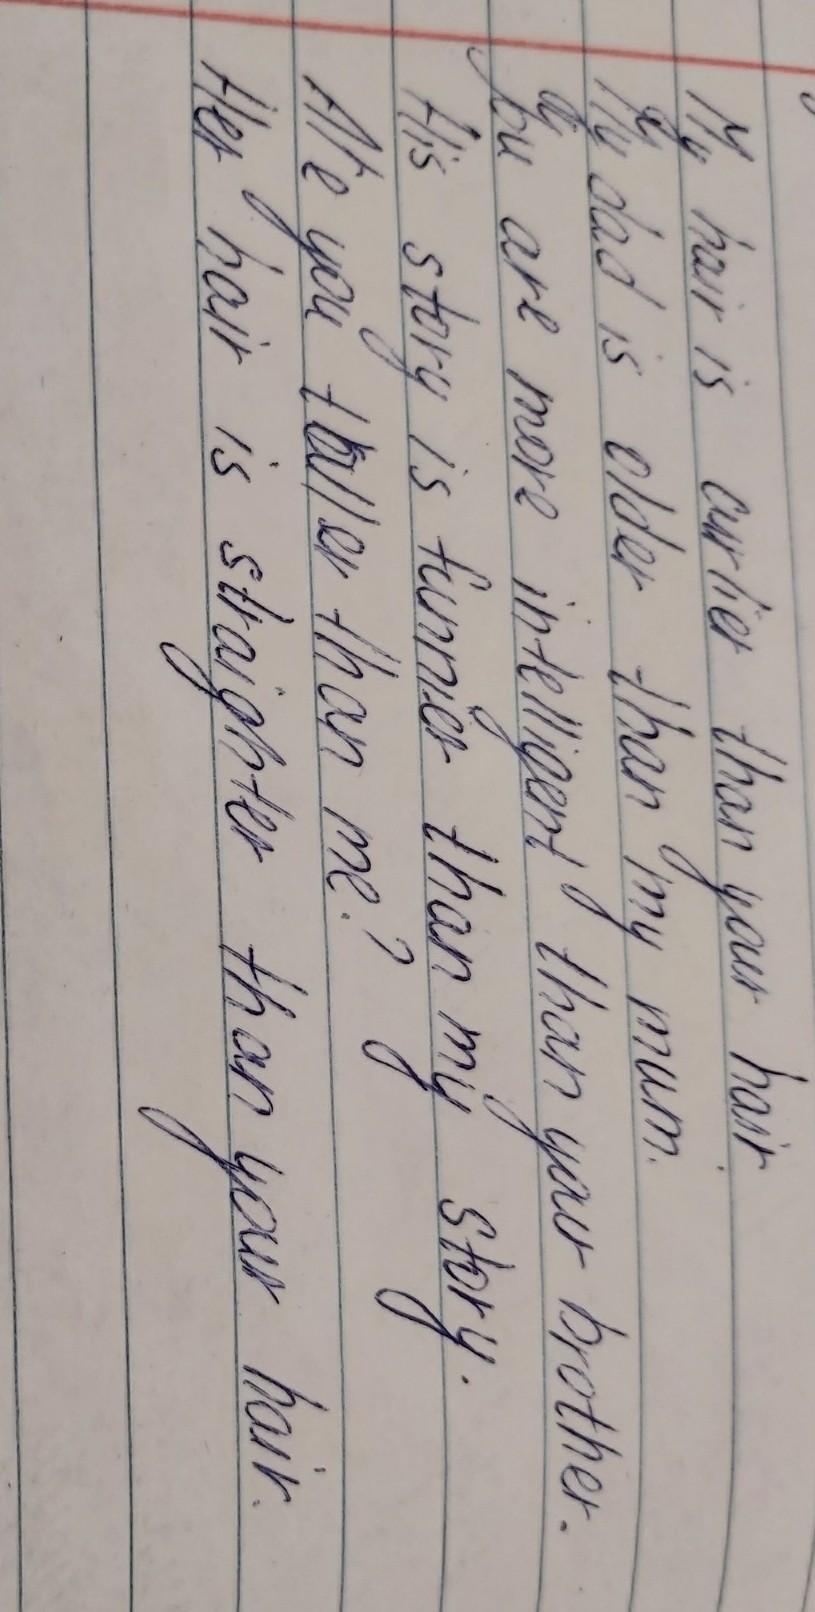 My hair is curlier than your hair
My dad is older than my mum.
You are more intelligent than your brother.
His story is funnier than my story.
Are you taller than me?
Her hair is straighter than your hair.